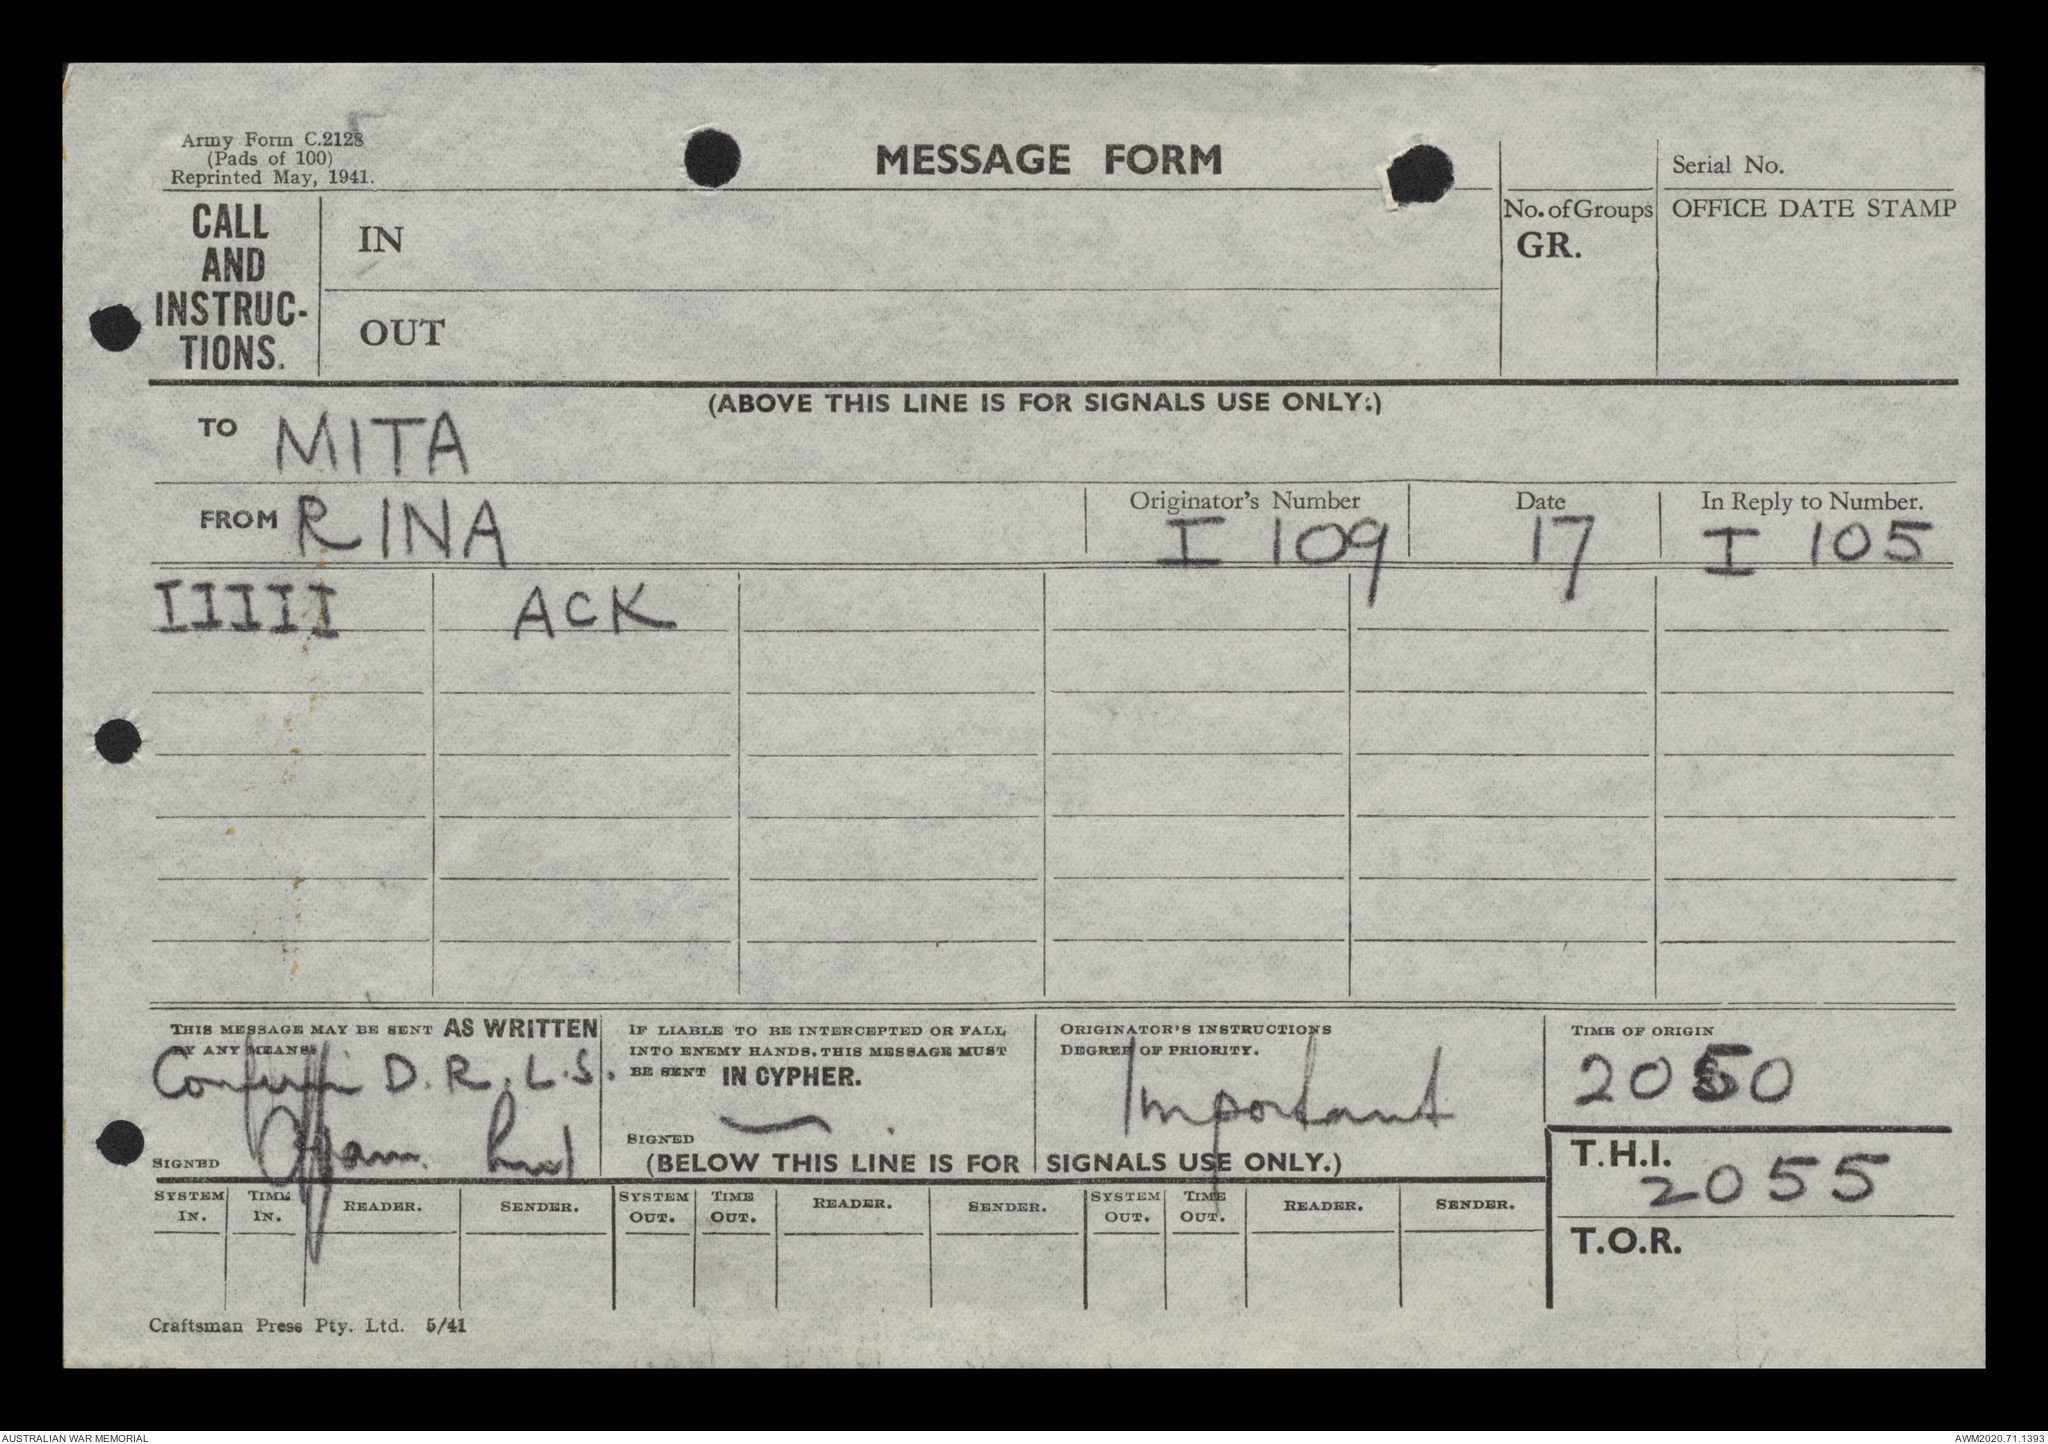 Army Form C.2128
(Pads of 100)
Reprinted May, 1941.
MESSAGE FORM
Serial No.
CALL AND INSTRUC-TIONS.
IN
OUT
No. of Groups
GR.
OFFICE DATE STAMP
(ABOVE THIS LINE IS FOR SIGNALS USE ONLY.)
TO MITA
FROM RINA
Originator's Number
I 109
Date
17
In Reply to Number.
I 105
IIIII ACK
THIS MESSAGE MAY BE SENT AS WRITTEN
BY ANY MEANS.
D.R.L.S.
SIGNED
IF LIABLE TO BE INTERCEPTED OR FALL
INTO ENEMY HANDS, THIS MESSAGE MUST
BE SENT IN CYPHER.
SIGNED
ORIGINATOR'S INSTRUCTIONS
DEGREE OF PRIORITY.
Important
TIME OF ORIGIN
2050
(BELOW THIS LINE IS FOR SIGNALS USE ONLY.)
T.H.I.
2055
T.O.R.
SYSTEM IN. TIME IN. READER. SENDER. SYSTEM OUT. TIME OUT. READER. SENDER. SYSTEM OUT. TIME OUT. READER. SENDER.
Craftsman Press Pty. Ltd. 5/41
AUSTRALIAN WAR MEMORIAL
AWM2020.71.1393